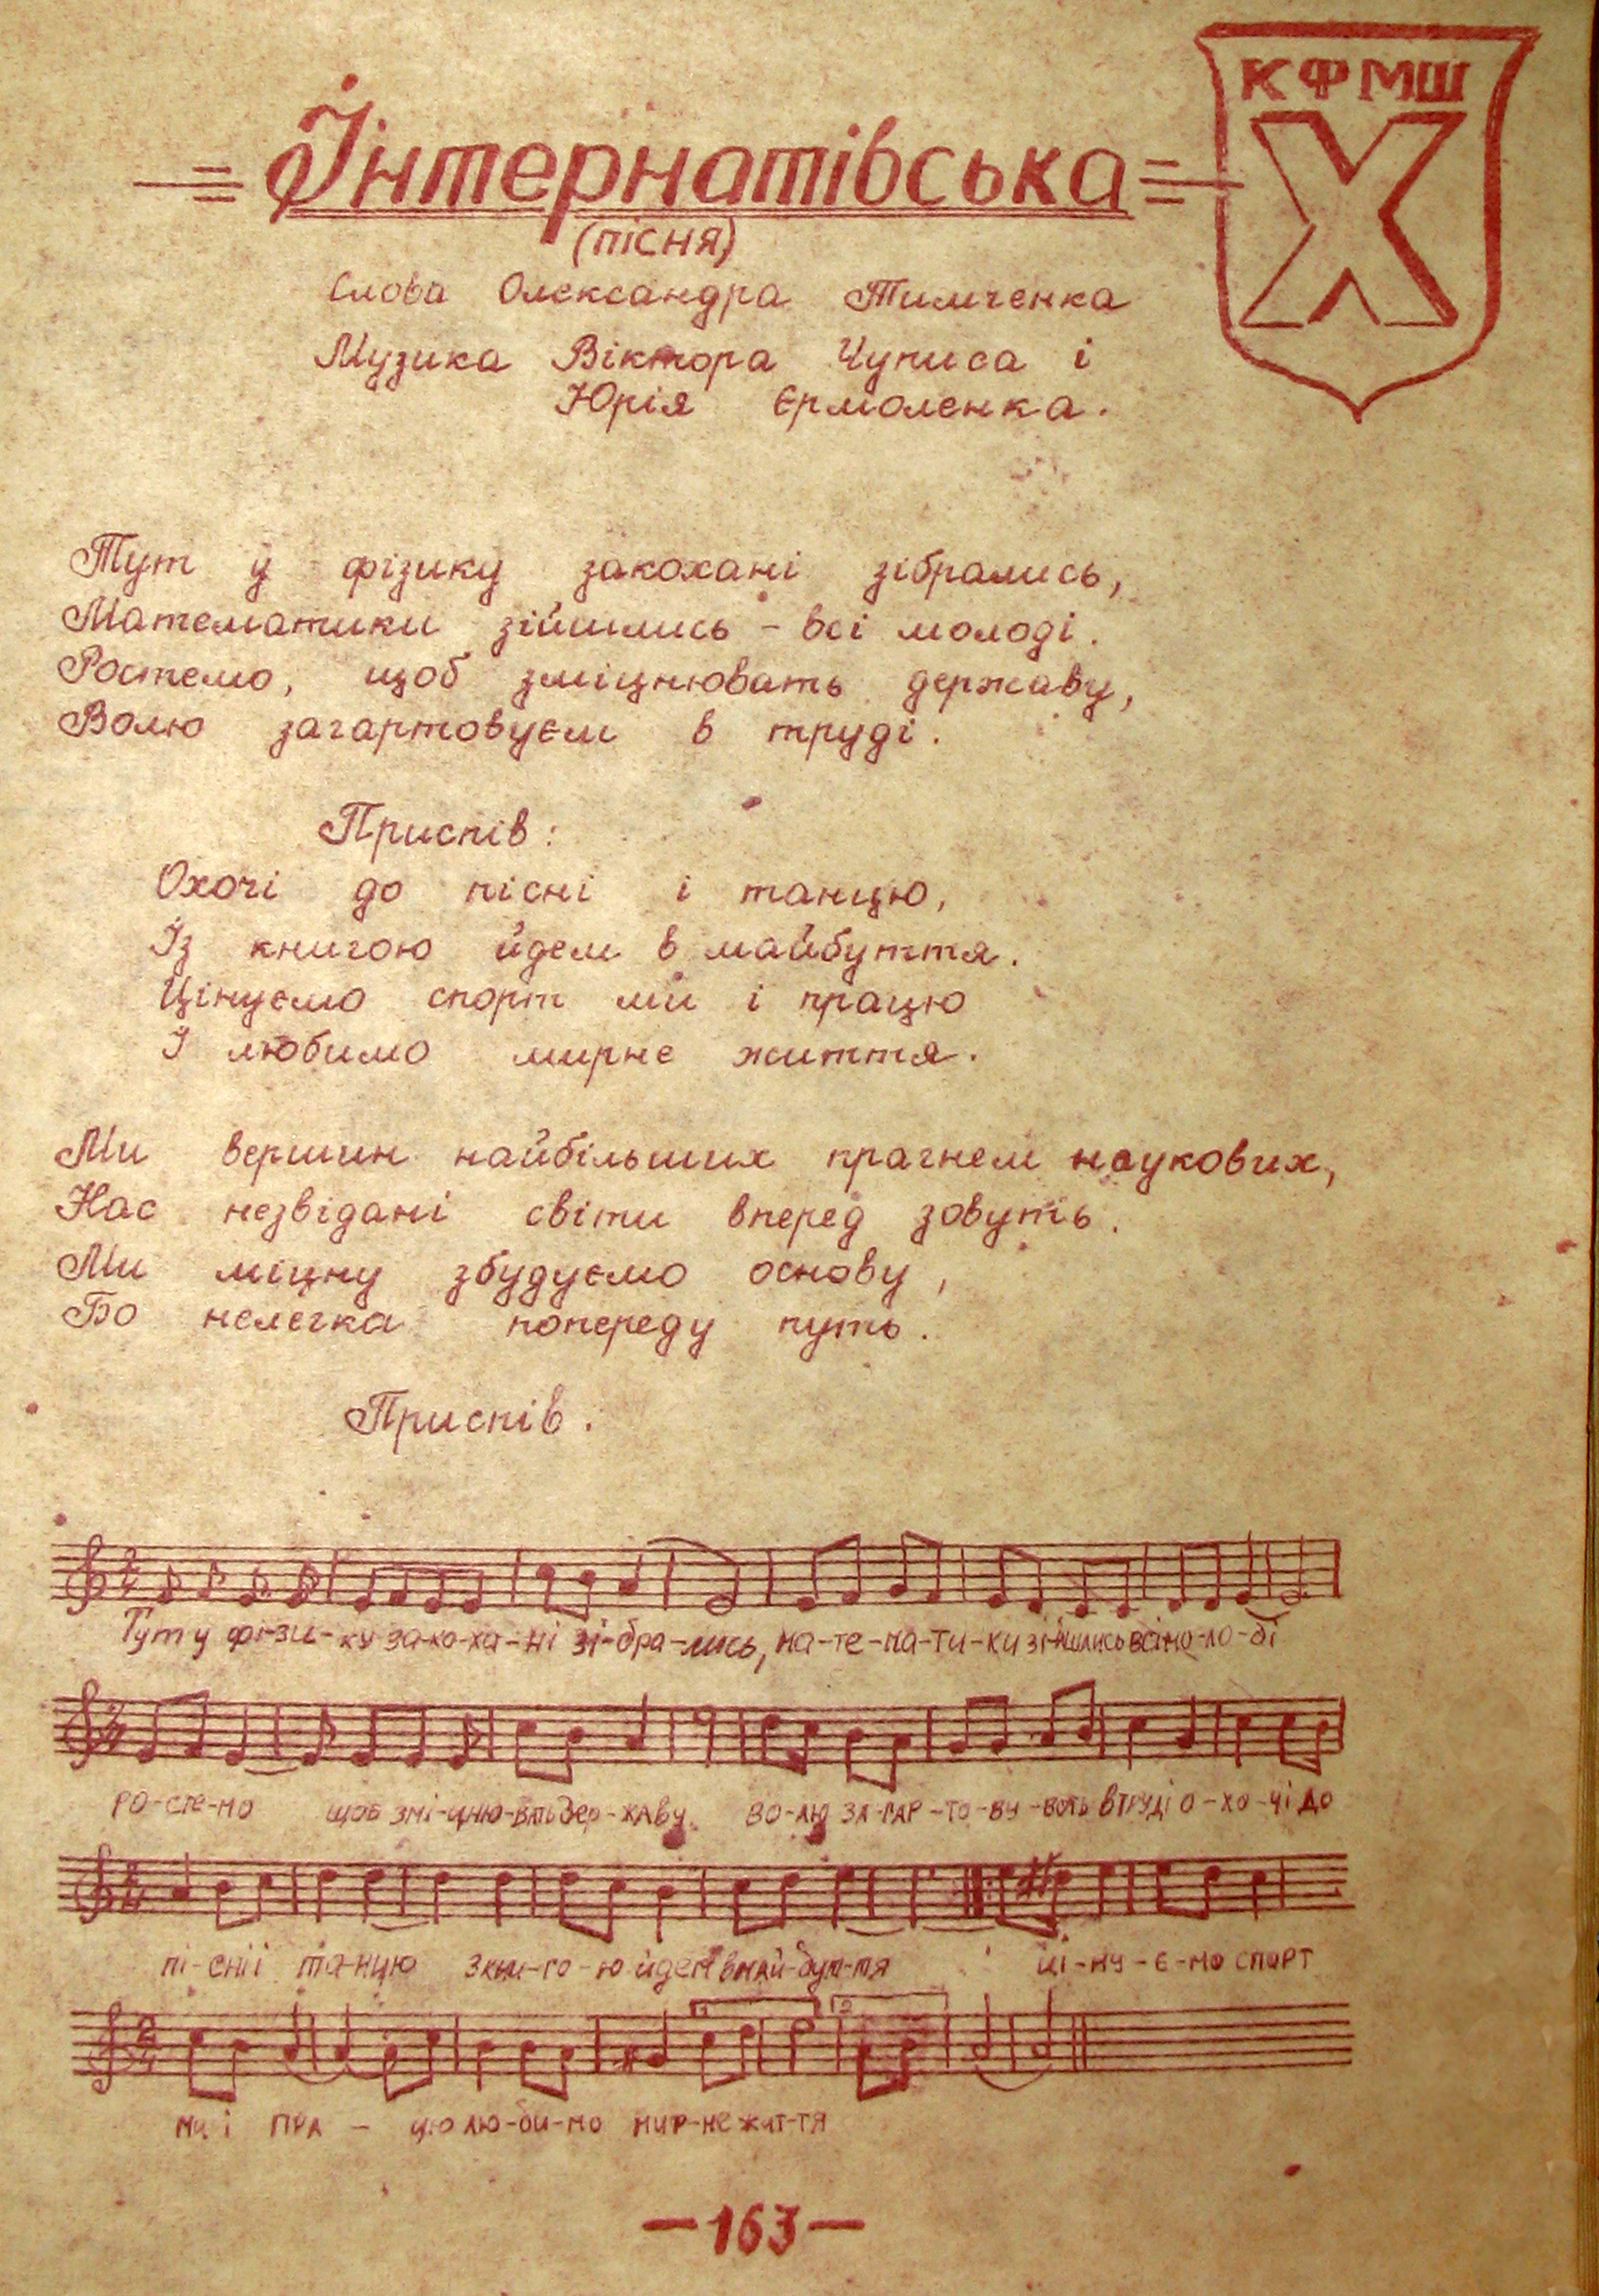 КФМШ
X
Інтернатівська
(пісня)
Слова Олександра Тимченка
Музика Віктора Чуписа і
Юрія Єрмоленка.
Тут у фізику закохані зібрались,
Математики зійшлись – всі молоді.
Ростемо, щоб зміцнювать державу,
Волю загартовуєм в труді.
Приспів:
Охочі до пісні і танцю,
Із книгою йдем в майбуття.
Цінуємо спорт ми і працю
І любимо мирне життя.
Ми вершин найбільших прагнем наукових,
Нас незвідані світи вперед зовуть.
Ми міцну збудуємо основу,
Бо нелегка попереду путь.
Приспів.
Тут у фі-зи-ку за-ко-ха-ні зі-бра-лись, ма-те-ма-ти-ки зійшлись всі мо-ло-ді
РО-сте-мо щоб змі-цню-вать дер-жаву ВО-лю ЗА-ГАР-ТО-ВУ-вать в труді О-ХО-чі ДО
пі-сні і та-нцю З кни-го-ю йдем в май-бут-тя ці-ну-є-мо спорт
ми і ПРА – цю лю-би-мо мир-не жит-тя
1 2
–163–